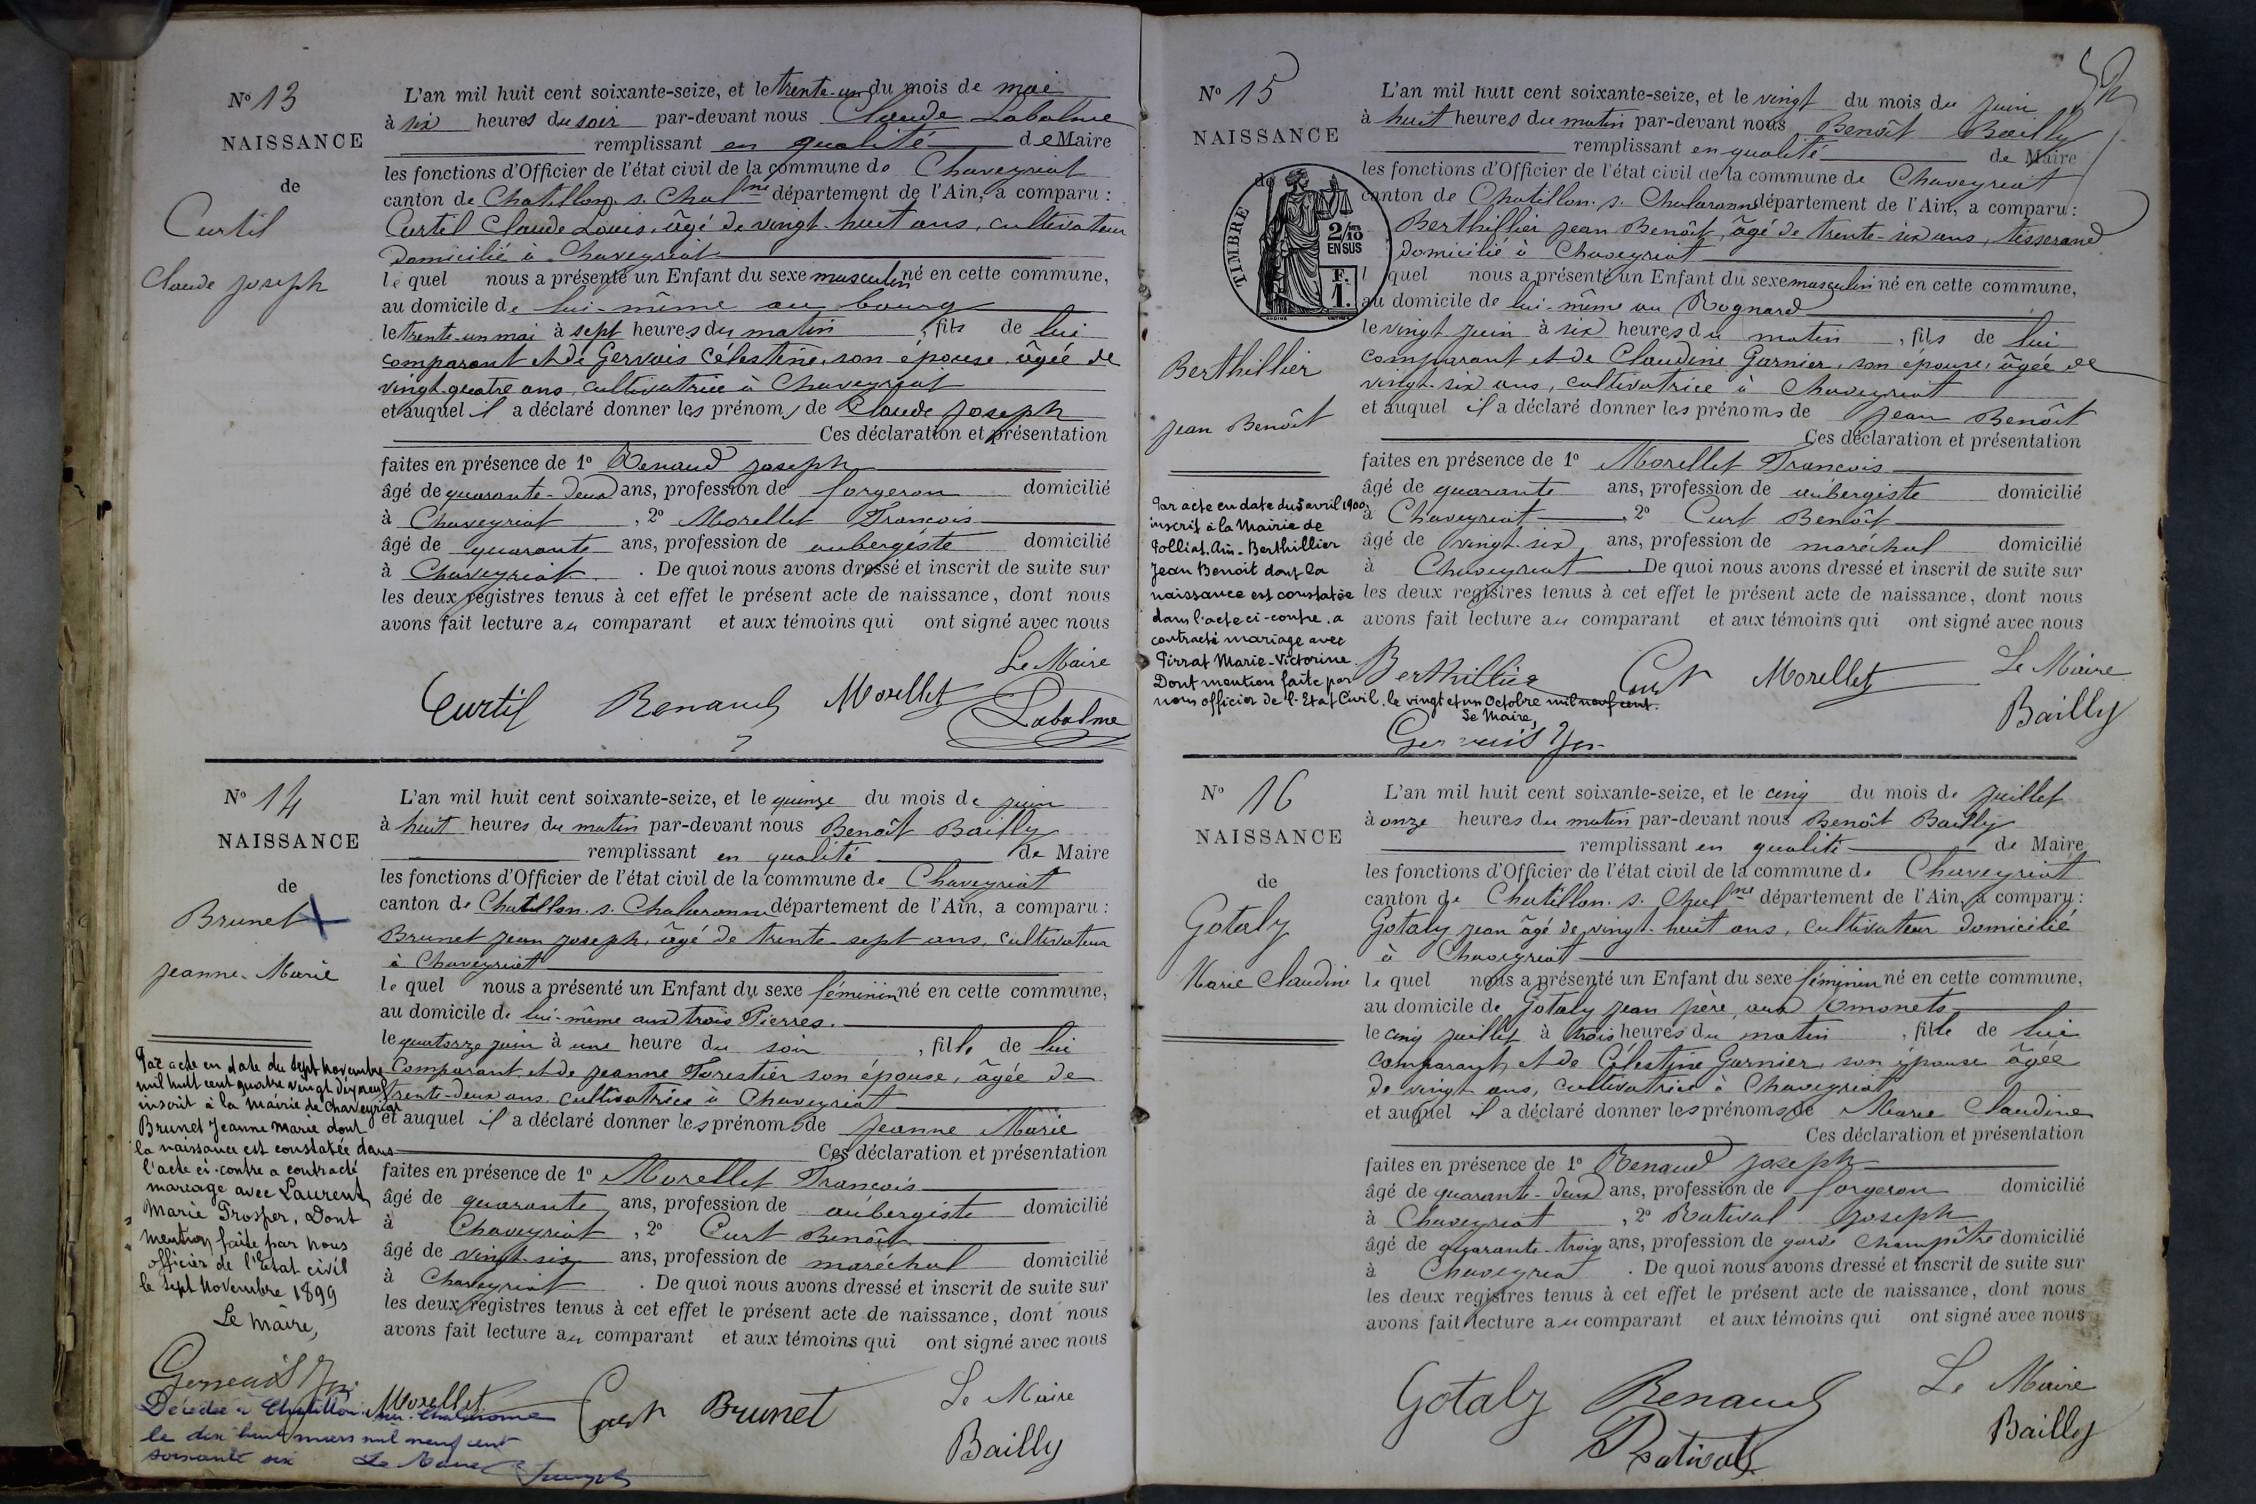 N° 13
NAISSANCE
de
Curtil
Claude Joseph
L'an mil huit cent soixante-seize, et le trente-un du mois de mai
à six heures du soir par-devant nous Claude Labalme
remplissant en qualité de Maire
les fonctions d'Officier de l'état civil de la commune de Chaveyriat
canton de Chatillon s. Chal.ne département de l'Ain, a comparu :
Curtil Claude Louis, âgé de vingt-huit ans, cultivateur
Domicilié à Chaveyriat
le quel nous a présenté un Enfant du sexe masculin né en cette commune,
au domicile de lui-même au bourg
le trente-un mai à sept heures du matin, fils de lui
comparant et de Gervais Célestine, son épouse, âgée de
vingt-quatre ans, cultivatrice à Chaveyriat
et auquel il a déclaré donner les prénoms de Claude Joseph
Ces déclaration et présentation
faites en présence de 1° Renaud Joseph
âgé de quarante-deux ans, profession de forgeron domicilié
à Chaveyriat, 2° Morellet François
âgé de quarante ans, profession de aubergiste domicilié
à Chaveyriat. De quoi nous avons dressé et inscrit de suite sur
les deux registres tenus à cet effet le présent acte de naissance, dont nous
avons fait lecture au comparant et aux témoins qui ont signé avec nous
Le Maire
Curtil Renaud Morellet Labalme
N° 14
NAISSANCE
de
Brunet
Jeanne-Marie
Par acte en date du sept novembre
mil huit cent quatre vingt dix neuf
inscrit à la mairie de Chaveyriat
Brunet Jeanne Marie dont
la naissance est constatée dans
l'acte ci-contre a contracté
mariage avec Laurent
Marie Prosper, Dont
mention faite par nous
officier de l'Etat civil
le sept Novembre 1899
Le Maire,
Gervais
Décédée à Chatillon-sur-Chalaronne
le dix huit mars mil neuf cent
soixante six Le Maire
L'an mil huit cent soixante-seize, et le quinze du mois de juin
à huit heures du matin par-devant nous Benoît Bailly
remplissant en qualité de Maire
les fonctions d'Officier de l'état civil de la commune de Chaveyriat
canton de Chatillon. s. Chalaronne département de l'Ain, a comparu :
Brunet Jean Joseph, âgé de trente-sept ans, cultivateur
à Chaveyriat
le quel nous a présenté un Enfant du sexe féminin né en cette commune,
au domicile de lui-même aux trois Pierres.
le quatorze juin à une heure du soir, fille de lui
Comparant et de Jeanne Forestier son épouse, âgée de
trente-deux ans cultivatrice à Chaveyriat
et auquel il a déclaré donner les prénoms de Jeanne Marie
Ces déclaration et présentation
faites en présence de 1° Morellet François
âgé de quarante ans, profession de aubergiste domicilié
à Chaveyriat, 2° Curt Benoît
âgé de vingt-six ans, profession de maréchal domicilié
à Chaveyriat. De quoi nous avons dressé et inscrit de suite sur
les deux registres tenus à cet effet le présent acte de naissance, dont nous
avons fait lecture au comparant et aux témoins qui ont signé avec nous
Morellet Curt Brunet
Le Maire
Bailly
N° 15
NAISSANCE
de
TIMBRE
2/10
EN SUS
F.
1.
Berthillier
Jean Benoît
Par acte en date du 5 avril 1900,
inscrit à la Mairie de
Polliat. Ain - Berthillier
Jean Benoit dont la
naissance est constatée
dans l'acte ci-contre, a
contracté mariage avec
Pirrat Marie-Victorine
Dont mention faite par
nous officier de l'Etat Civil, le vingt et un Octobre mil neuf cent.
Le Maire,
Gervais
L'an mil huit cent soixante-seize, et le vingt du mois du juin
à huit heures du matin par-devant nous Benoît Bailly
remplissant en qualité de Maire
les fonctions d'Officier de l'état civil de la commune de Chaveyriat
canton de Chatillon. s. Chalaronne département de l'Ain, a comparu :
Berthillier Jean Benoît, âgé de trente-six ans, tisserand
domicilié à Chaveyriat
l quel nous a présenté un Enfant du sexe masculin né en cette commune,
au domicile de lui-même au Rognard
le vingt juin à six heures du matin, fils de lui
comparant et de Claudine Garnier, son épouse, âgée de
vingt-six ans, cultivatrice à Chaveyriat
et auquel il a déclaré donner les prénoms de Jean Benoît
Ces déclaration et présentation
faites en présence de 1° Morellet François
âgé de quarante ans, profession de aubergiste domicilié
à Chaveyriat, 2° Curt Benoît
âgé de vingt-six ans, profession de maréchal domicilié
à Chaveyriat De quoi nous avons dressé et inscrit de suite sur
les deux registres tenus à cet effet le présent acte de naissance, dont nous
avons fait lecture au comparant et aux témoins qui ont signé avec nous
Berthillier Curt Morellet
Le Maire
Bailly
N° 16
NAISSANCE
de
Gotaly
Marie Claudine
L'an mil huit cent soixante-seize, et le cinq du mois de juillet
à onze heures du matin par-devant nous Benoît Bailly
remplissant en qualité de Maire
les fonctions d'Officier de l'état civil de la commune de Chaveyriat
canton de Chatillon. s. Chal.ne département de l'Ain, a comparu :
Gotaly Jean âgé de vingt-huit ans, cultivateur domicilié
à Chaveyriat
le quel nous a présenté un Enfant du sexe féminin né en cette commune,
au domicile de Gotaly Jean père, aux Emonets
le cinq juillet à trois heures du matin, fille de lui
comparant et de Célestine Garnier, son épouse âgée
de vingt ans, cultivatrice à Chaveyriat
et auquel il a déclaré donner les prénoms de Marie Claudine
Ces déclaration et présentation
faites en présence de 1° Renaud Joseph
âgé de quarante-deux ans, profession de forgeron domicilié
à Chaveyriat, 2° Rativat Joseph
âgé de quarante-trois ans, profession de garde Champêtre domicilié
à Chaveyriat. De quoi nous avons dressé et inscrit de suite sur
les deux registres tenus à cet effet le présent acte de naissance, dont nous
avons fait lecture au comparant et aux témoins qui ont signé avec nous
Gotaly Renaud
Rativat
Le Maire
Bailly